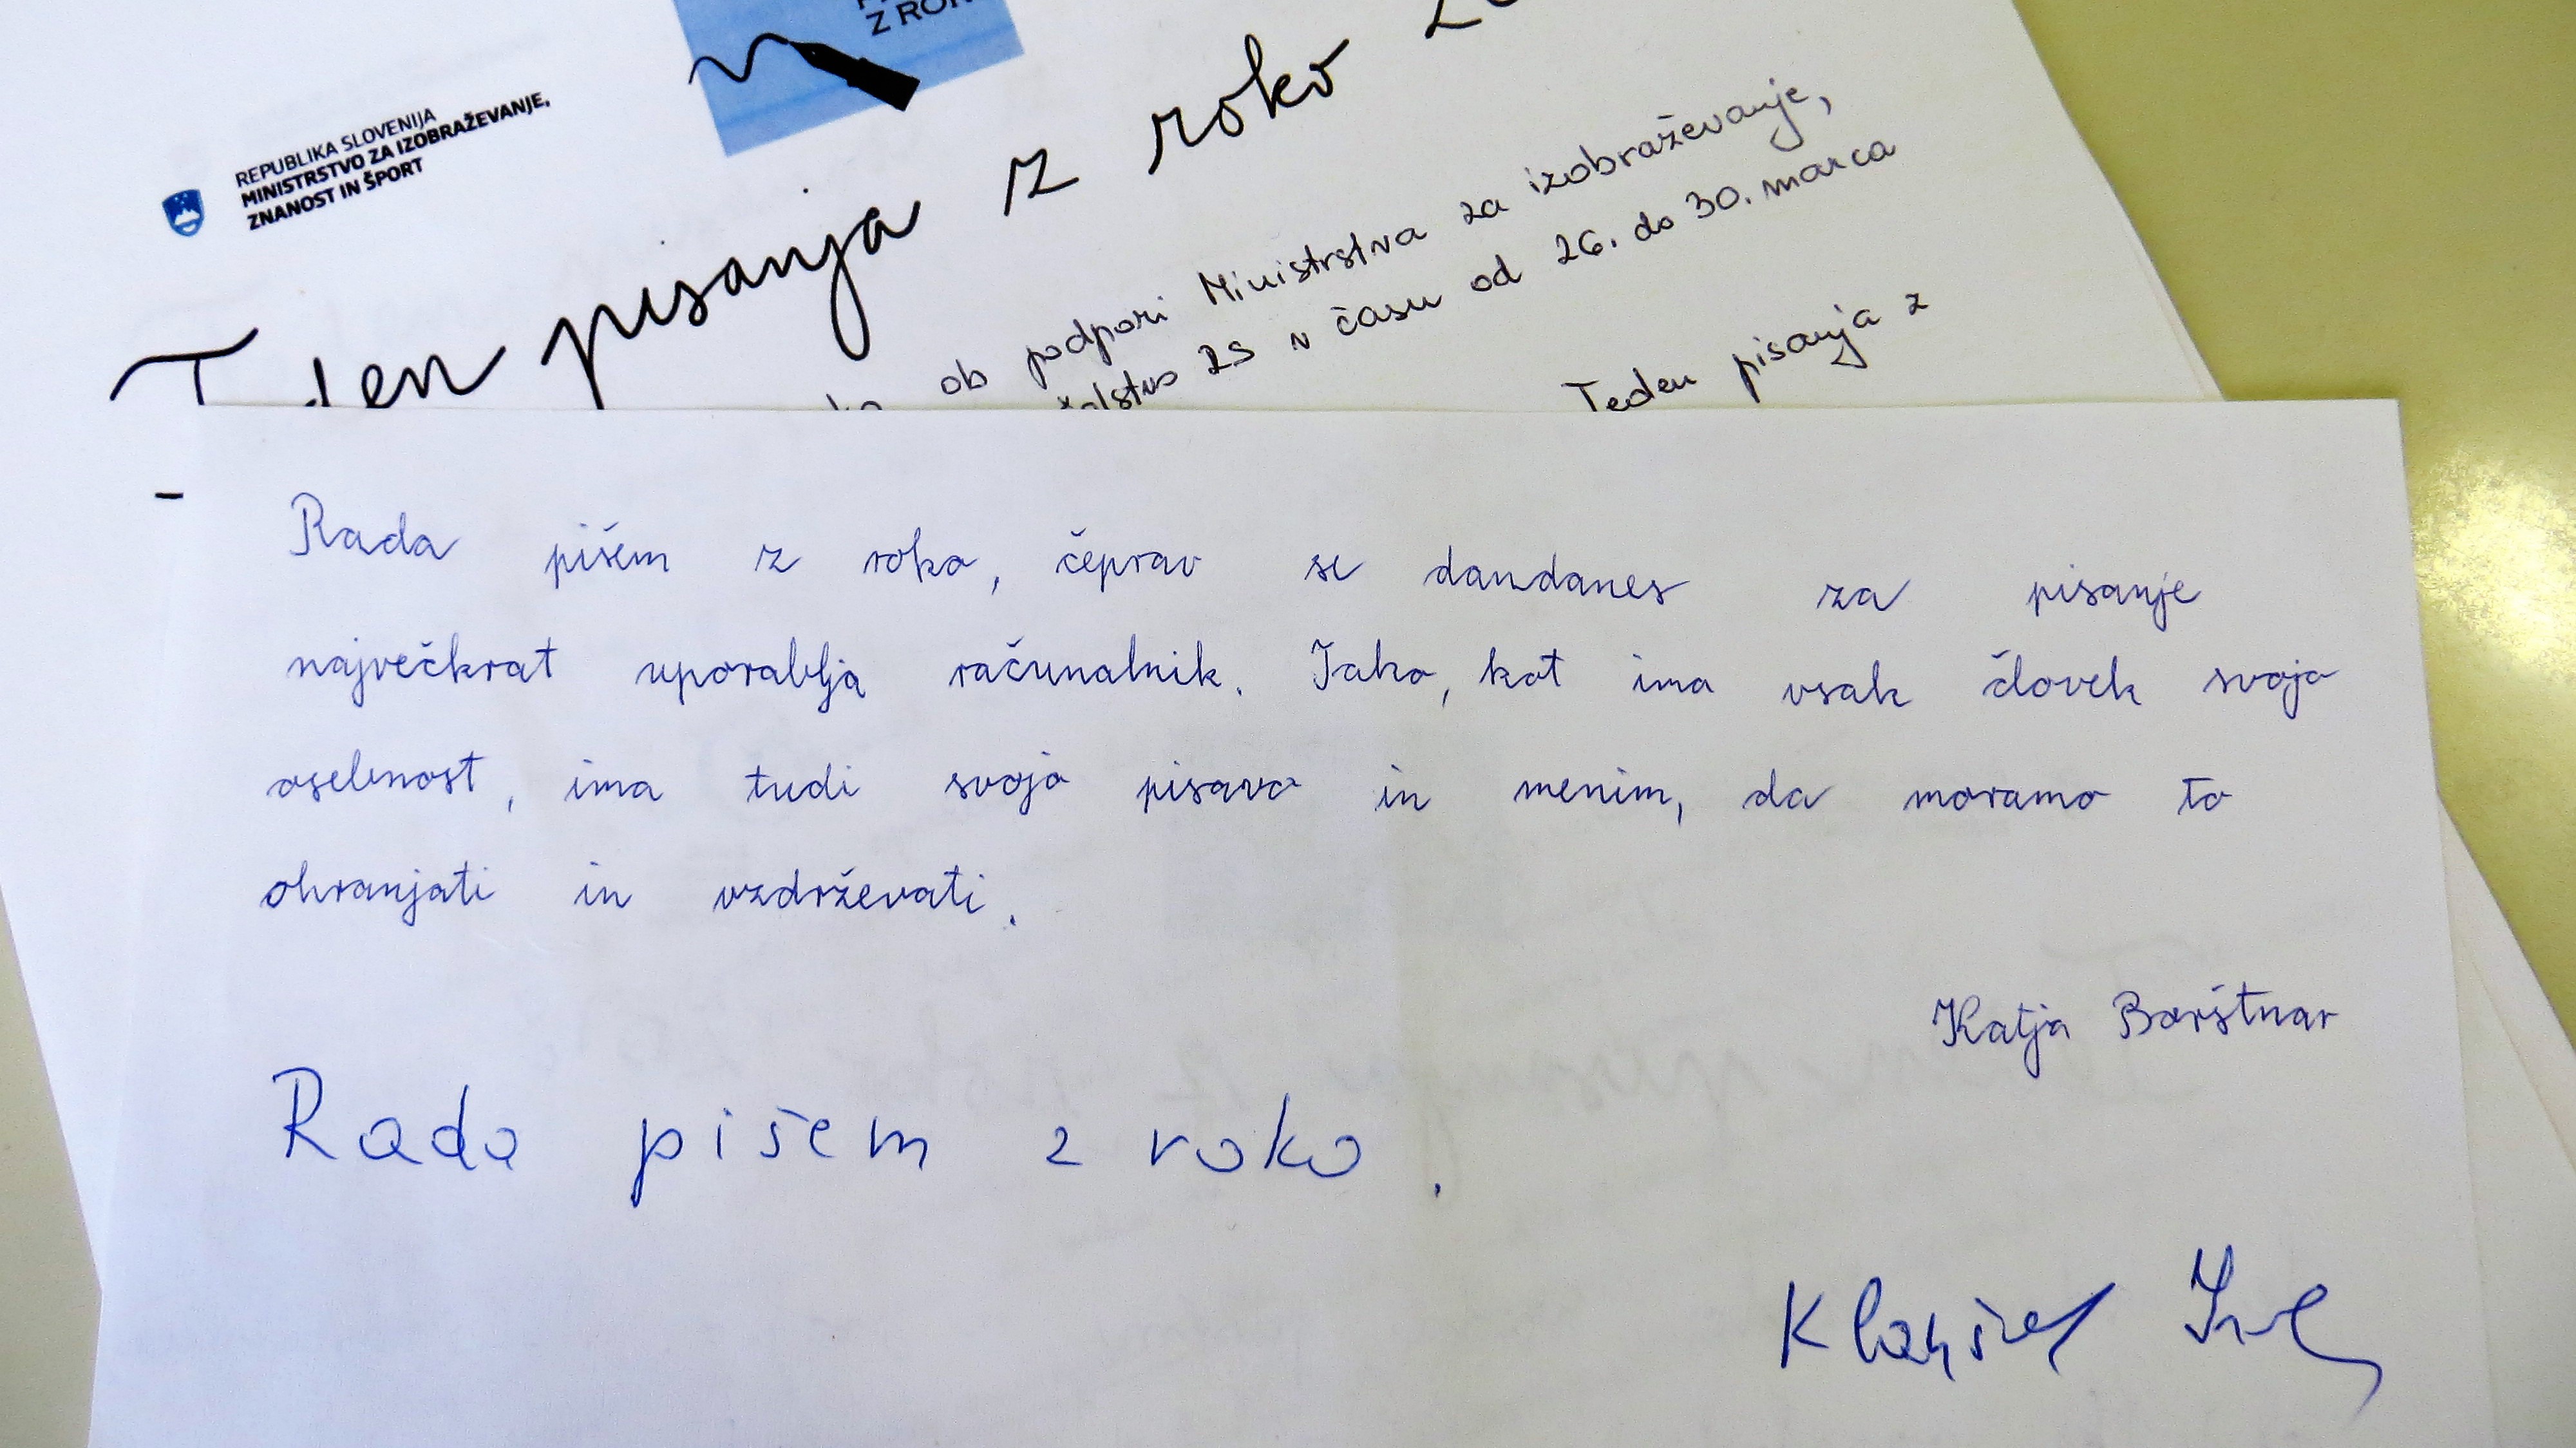 Z ROKO
REPUBLIKA SLOVENIJA
MINISTRSTVO ZA IZOBRAŽEVANJE,
ZNANOST IN ŠPORT
Teden pisanja z roko
ob podpori Ministrstva za izobraževanje,
šolstvo RS v času od 26. do 30. marca
Teden pisanja z
Rada pišem z roko, čeprav se dandanes za pisanje
največkrat uporablja računalnik. Tako, kot ima vsak človek svojo
osebnost, ima tudi svojo pisavo in menim, da moramo to
ohranjati in vzdrževati.
Katja Borštnar
Rada pišem z roko.